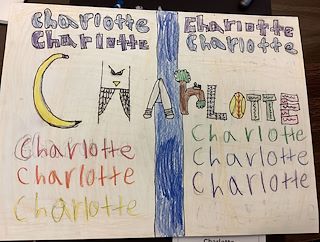 Charlotte Charlotte
Charlotte Charlotte
CHARLOTTE
Charlotte Charlotte
Charlotte Charlotte
Charlotte Charlotte
Charlotte